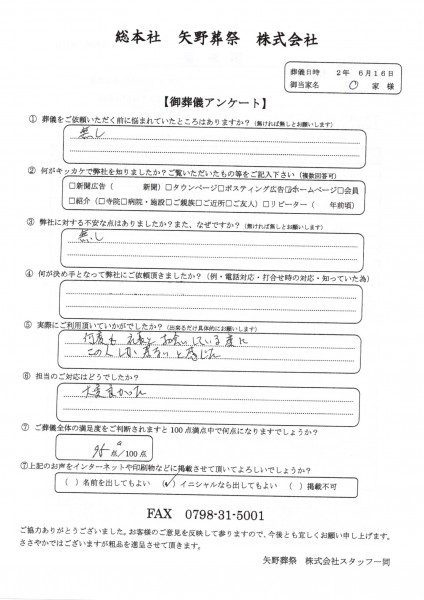 総本社 矢野葬祭 株式会社
葬儀日時: 2年 6月16日
御当家名 O 家 様
【御葬儀アンケート】
① 葬儀をご依頼いただく前に悩まれていたところはありますか?(無ければ無しとお願いします)
無し
② 何がキッカケで弊社を知りましたか?ご覧いただいたもの等をご記入下さい(複数回答可)
□新聞広告( 新聞)□タウンページ□ポスティング広告☑ホームページ□会員
□紹介(□寺院□病院・施設□ご親族□ご近所□ご友人)□リピーター( 年前頃)
③ 弊社に対する不安な点はありましたか?また、なぜですか?(無ければ無しとお願いします)
無し
④ 何が決め手となって弊社にご依頼頂きましたか?(例・電話対応・打合せ時の対応・知っていた為)
⑤ 実際にご利用頂いていかがでしたか?(出来るだけ具体的にお願いします)
何度も お話している度に
この人しか居ないと感じた
⑥ 担当のご対応はどうでしたか?
大変良かった
⑦ ご葬儀全体の満足度をご判断されますと100点満点中で何点になりますでしょうか?
95 点/100点
⑦上記のお声をインターネットや印刷物などに掲載させて頂いてよろしいでしょうか?
( )名前を出してもよい (✓)イニシャルなら出してもよい ( )掲載不可
FAX 0798-31-5001
ご協力ありがとうございました。お客様のご意見を反映して参りますので、今後とも宜しくお願い申し上げます。
ささやかではございますが粗品を進呈させて頂きます。
矢野葬祭 株式会社スタッフ一同